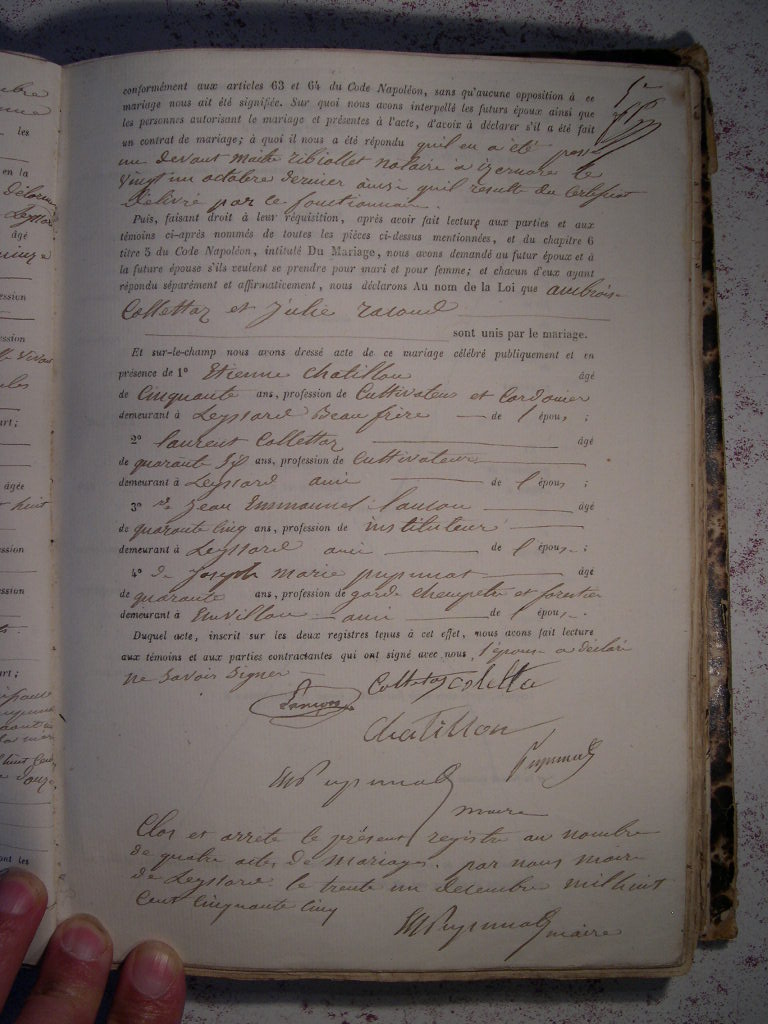 conformément aux articles 63 et 64 du Code Napoléon, sans qu'aucune opposition à ce
mariage nous ait été signifiée. Sur quoi nous avons interpellé les futurs époux ainsi que
les personnes autorisant le mariage et présentes à l'acte, d'avoir à déclarer s'il a été fait
un contrat de mariage; à quoi il nous a été répondu qu'il en a été passé
un devant maitre ribiollet notaire à izernore le
vingt un octobre dernier ainsi qu'il resulte du Certificat
delivré par le fonctionnaire.
Puis, faisant droit à leur réquisition, après avoir fait lecture aux parties et aux
témoins ci-après nommés de toutes les pièces ci-dessus mentionnées, et du chapitre 6
titre 5 du Code Napoléon, intitulé Du Mariage, nous avons demandé au futur époux et à
la future épouse s'ils veulent se prendre pour mari et pour femme; et chacun d'eux ayant
répondu séparément et affirmativement, nous déclarons Au nom de la Loi que ambrois
Collettaz et julie
sont unis par le mariage.
Et sur-le-champ nous avons dressé acte de ce mariage célébré publiquement et en
présence de 1° Etienne Chatillon âgé
de Cinquante ans, profession de Cultivateur et Cordonier
demeurant à Leyssard Beau frère de l'épous ;
2° laurent Collettaz âgé
de quarante six ans, profession de Cultivateur
demeurant à Leyssard ami de l'épous ;
3° Jean Emmanuel âgé
de quarante cinq ans, profession de instituteur
demeurant à Leyssard ami de l'épous ;
4° Joseph Marie pupunat âgé
de quarante ans, profession de garde champetre et forestier
demeurant à ami de l'épous ;
Duquel acte, inscrit sur les deux registres tenus à cet effet, nous avons fait lecture
aux témoins et aux parties contractantes qui ont signé avec nous, l'épouse a déclaré
ne savoir signer
Colletaz coletta
Chatillon
pupunat
Pupunat
maire
Clos et arrete le présent registre au nombre
de quatre actes de mariages. par nous maire
de Leyssard. le trente un decembre mil huit
Cent Cinquante Cinq
Pupunat maire